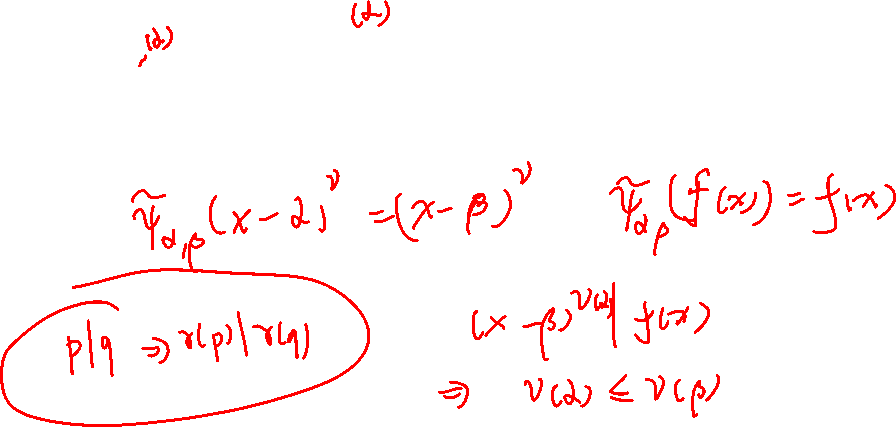 (α) (α)
ψ̃_{α,β}(x-α)^ν = (x-β)^ν ψ̃_{α,β}(f(x)) = f(x)
p|q ⇒ r(p)|r(q) (x-β)^{ν(α)} | f(x)
⇒ ν(α) ≤ ν(β)